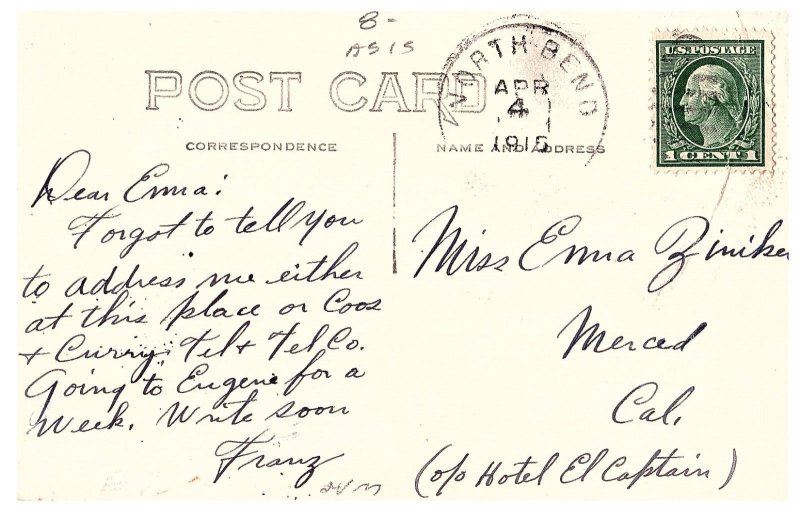 8-
AS IS
POST CARD
NORTH BEND
APR
4
1916
U.S. POSTAGE
1 CENT 1
CORRESPONDENCE
NAME AND ADDRESS
Dear Enna:
Forgot to tell you
to address me either
at this place or Coos
+ Curry Tel + Tel Co.
Going to Eugene for a
Week. Write soon
Franz
Miss Enna Ziniker
Merced
Cal.
(c/o Hotel El Captain)